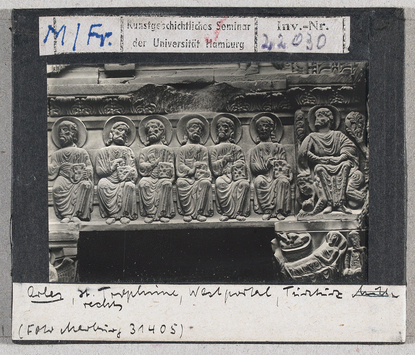 M/Fr.
Kunstgeschichtliches Seminar
der Universität Hamburg
Inv.-Nr.
22030
Arles, St. Trophime, Westportal, Türsturz
rechts
(Foto Marburg 31405)